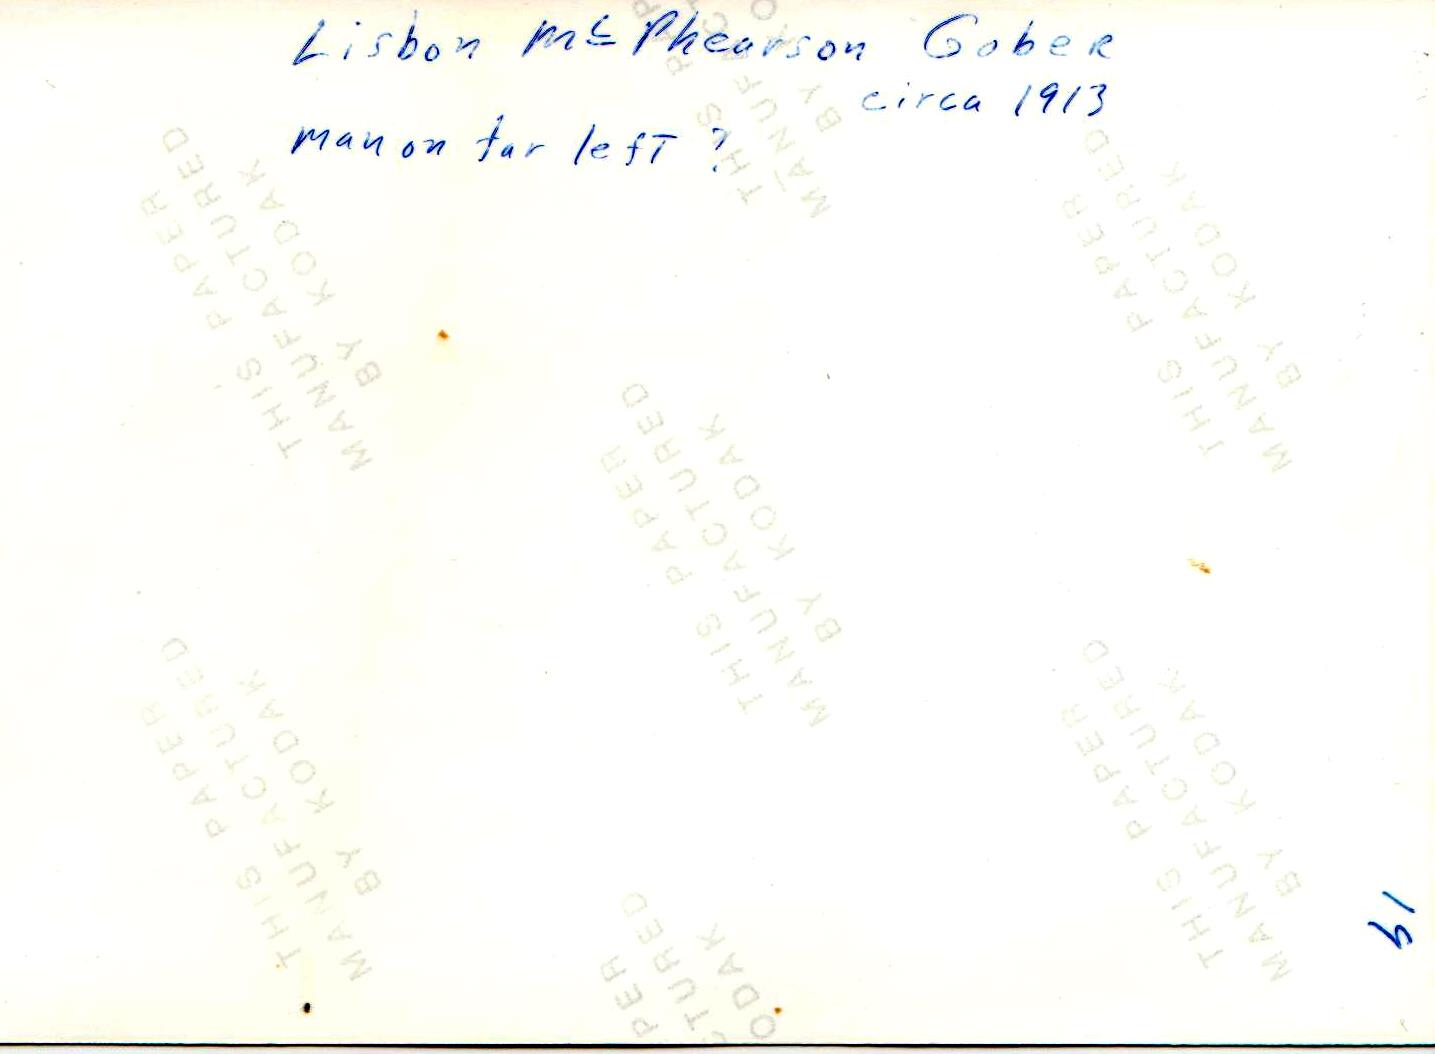 Lisbon Mc Phearson Gober
circa 1913
man on far left ?
THIS PAPER
MANUFACTURED
BY KODAK
THIS PAPER
MANUFACTURED
BY KODAK
THIS PAPER
MANUFACTURED
BY KODAK
THIS PAPER
MANUFACTURED
BY KODAK
THIS PAPER
MANUFACTURED
BY KODAK
THIS PAPER
MANUFACTURED
BY KODAK
PER
TURED
ODAK
19